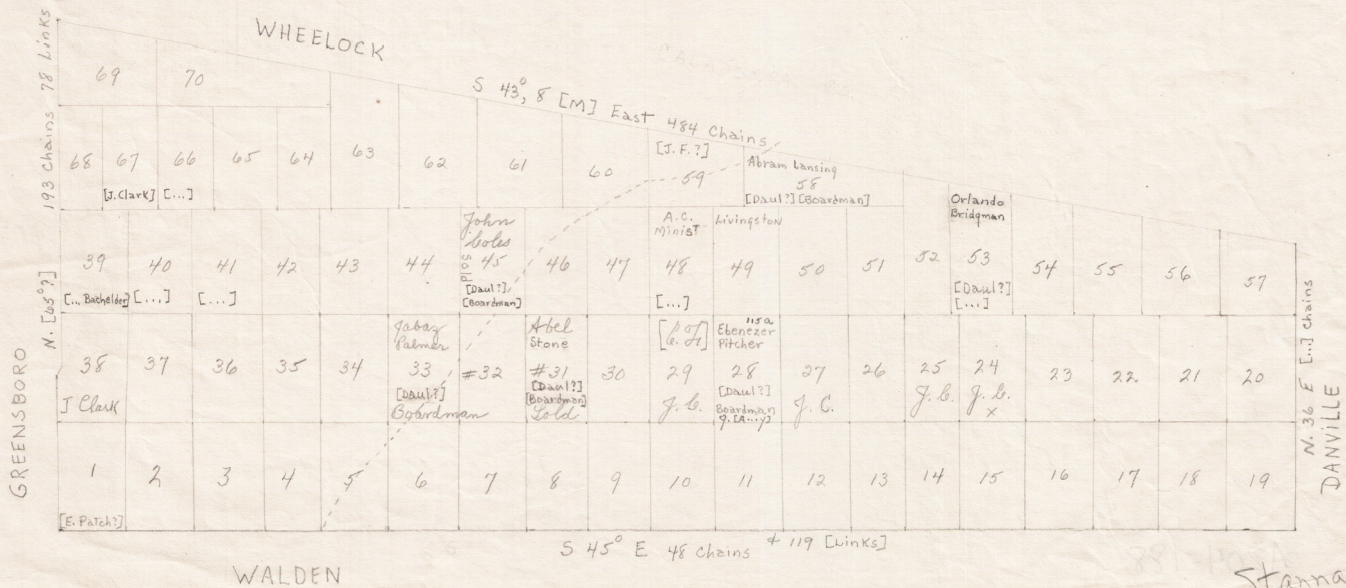 WHEELOCK
S 43°, 8 [M] East 484 Chains
193 Chains 78 Links
N. [65°?]
GREENSBORO
69 70
68 67 66 65 64 63 62 61 60 59 58
[J. Clark] [...]
[J.F.?]
Abram Lansing
[Daul?] [Boardman]
39 40 41 42 43 44 45 46 47 48 49 50 51 52 53 54 55 56 57
[... Bachelder] [...] [...]
John
Coles
plos
[Daul?]
[Boardman]
A.C.
Minist
[...]
Livingston
Orlando
Bridgman
[Daul?]
[...]
38 37 36 35 34 33 #32 #31 30 29 28 27 26 25 24 23 22 21 20
J Clark
Jabaz
Palmer
[Daul?]
Boardman
Abel
Stone
[Daul?]
[Boardman]
Sold
J. C.
115a
Ebenezer
Pitcher
[Daul?]
Boardman
J. [A...y]
J. C.
J. C.
J. C.
x
1 2 3 4 5 6 7 8 9 10 11 12 13 14 15 16 17 18 19
[E. Patch?]
N. 36 E [...] Chains
DANVILLE
S 45° E 48 Chains + 119 [Links]
WALDEN
Stanna